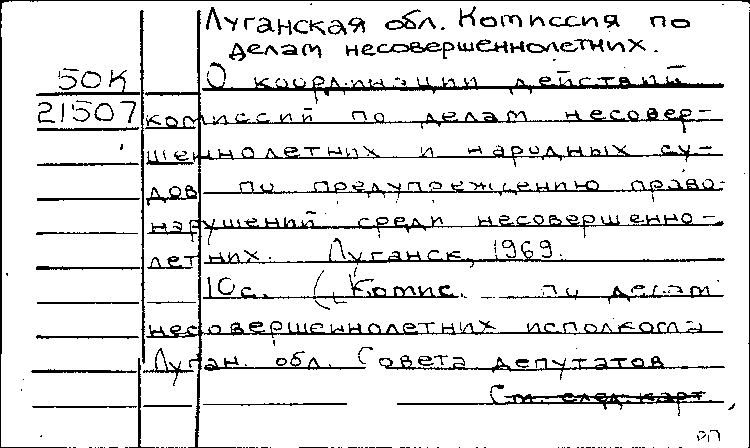 Луганская обл. Комиссия по
делам несовершеннолетних.
50К О координации действий
21507 комиссий по делам несовер-
шеннолетних и народных су-
дов по предупреждению право-
нарушений среди несовершенно-
летних. Луганск, 1969.
10с. (Комис. по делам
несовершеннолетних исполкома
Луган. обл. Совета депутатов
См. след. карт.
РП